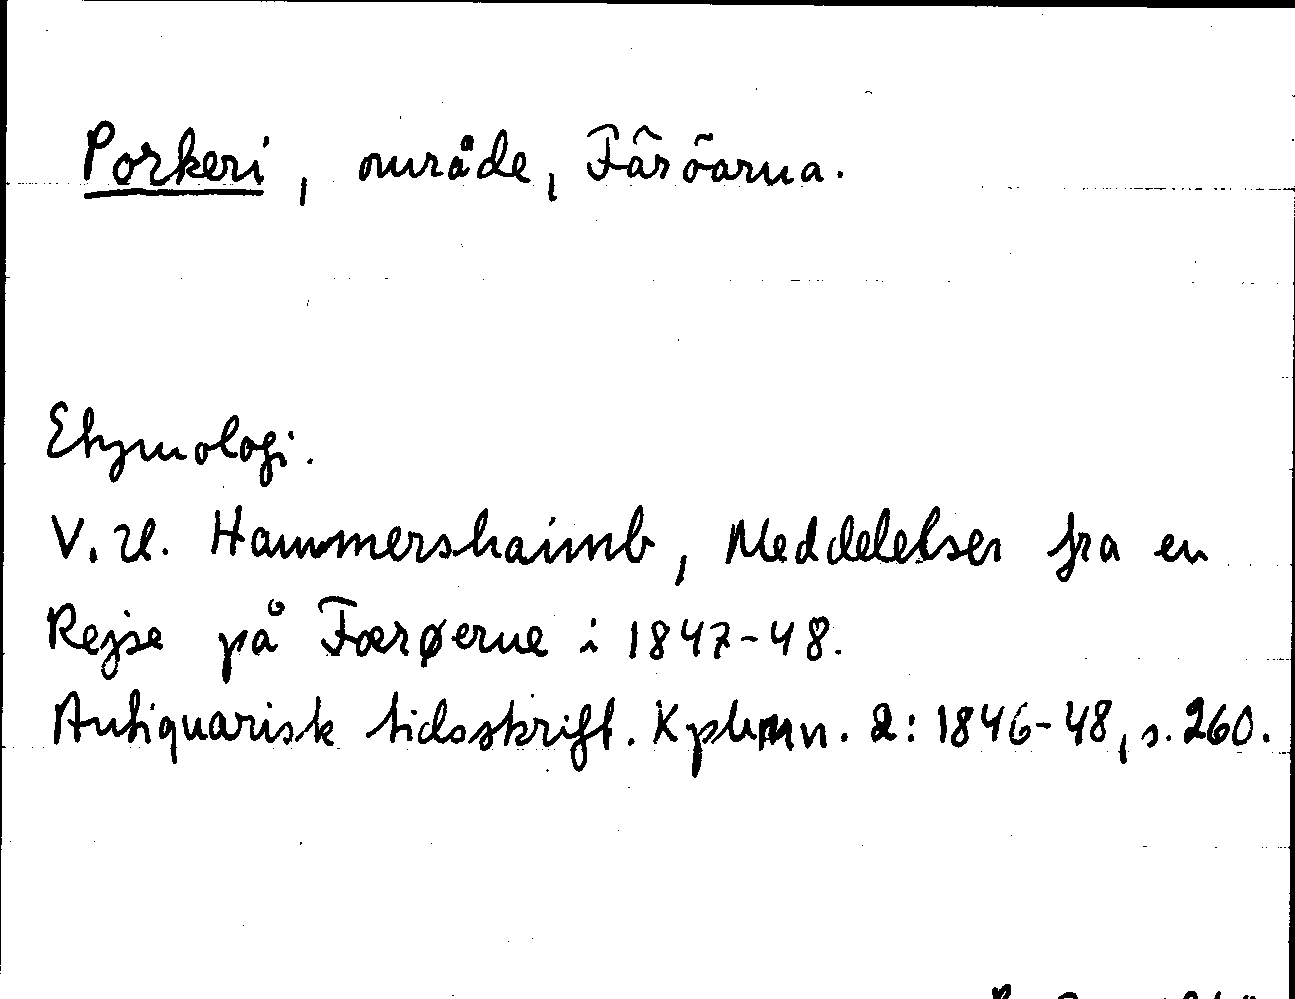 Porkeri, område, Färöarna.
Etymologi.
V. U. Hammershaimb, Meddelelser fra en
Rejse på Færøerne i 1847-48.
Antiquarisk tidsskrift. Kphmn. 2: 1846-48, s. 260.